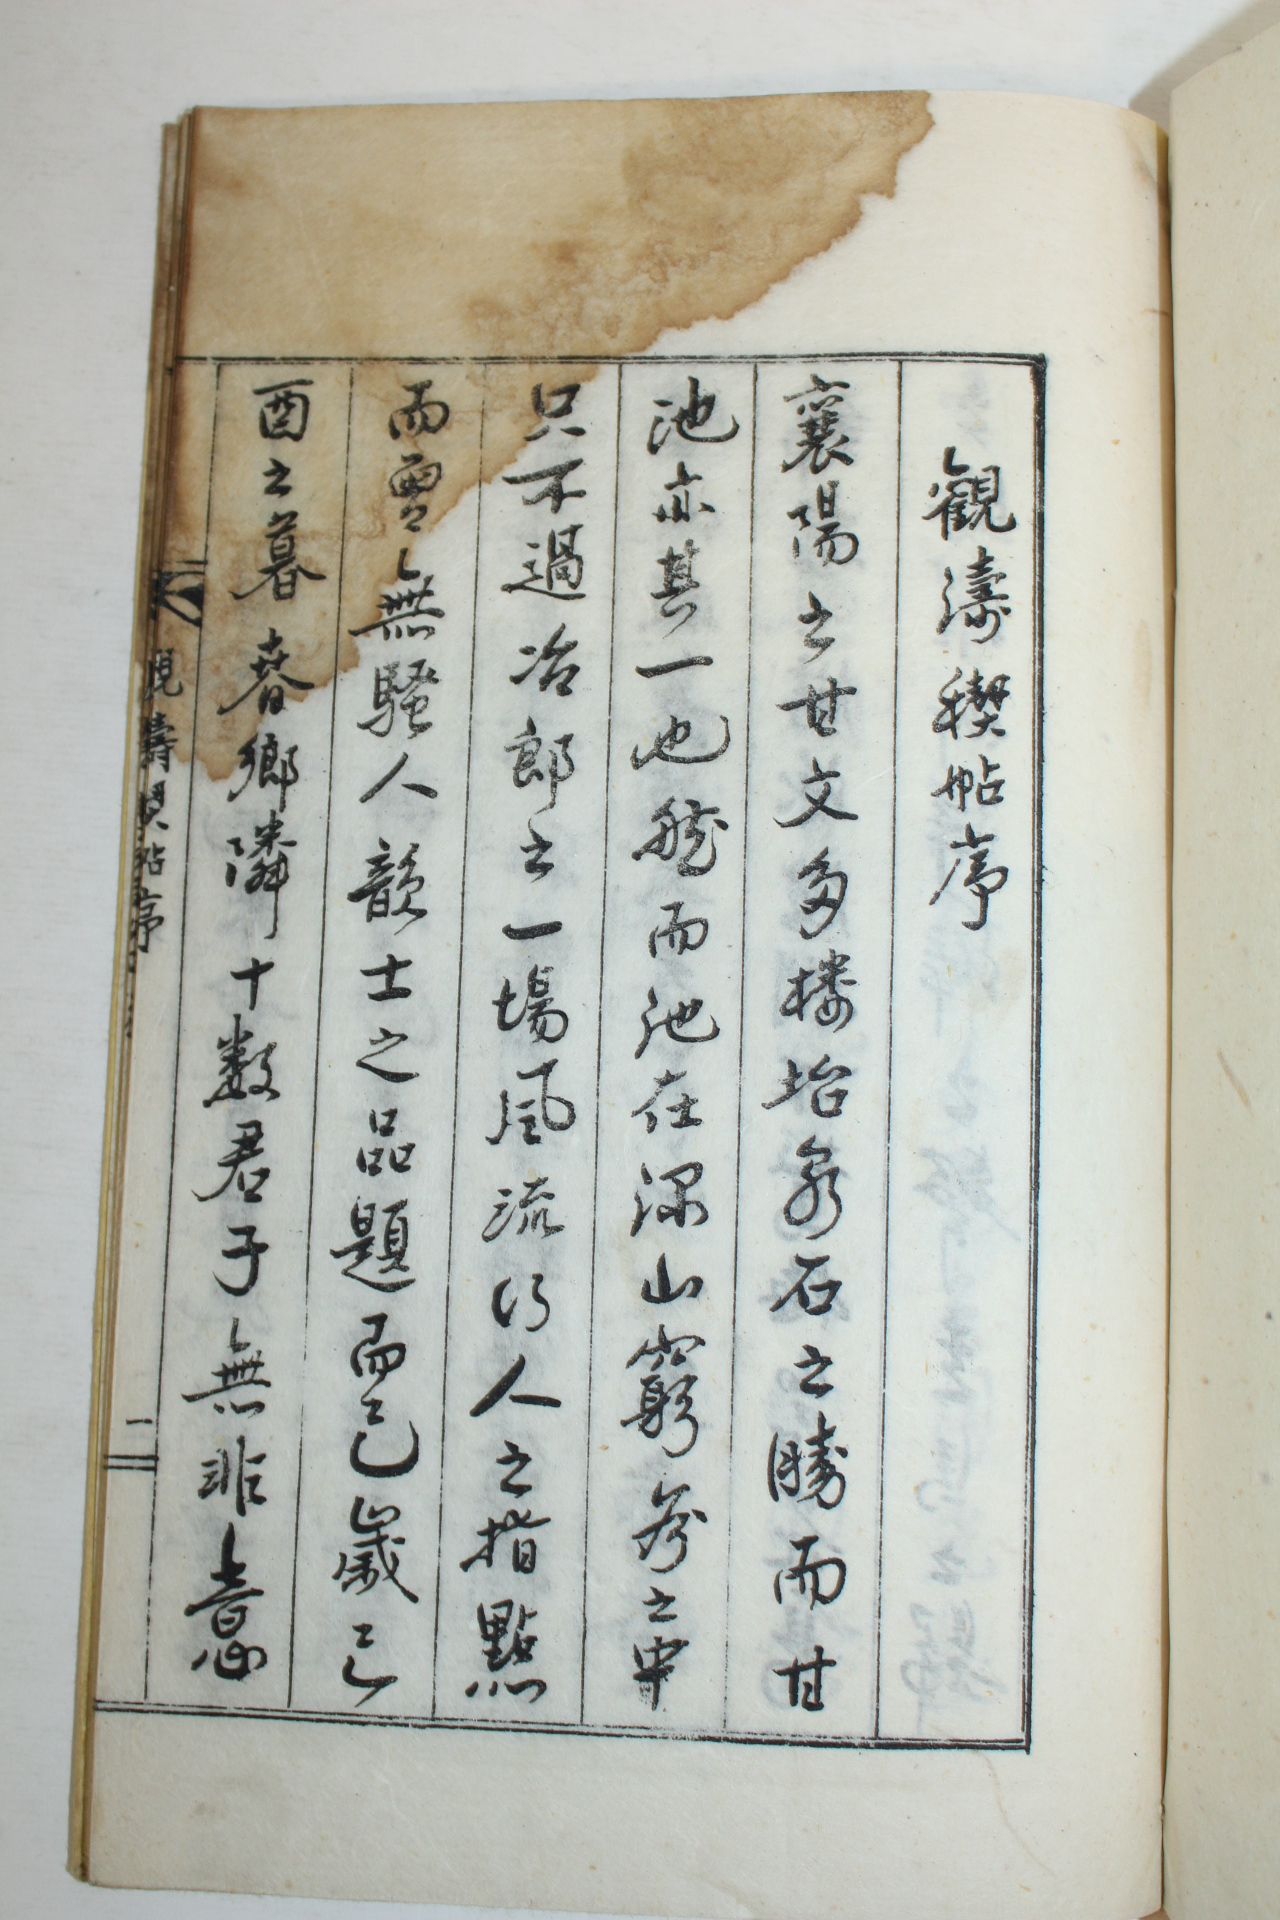 觀濤稧帖序
襄陽之甘文多樓坮泉石之勝而甘
池亦其一也然而池在深山窮谷之中
只不過冶郎之一場風流行人之指點
而實無騷人韻士之品題而已歲己
酉之暮春鄉隣十數君子無非意
觀濤稧帖序
一